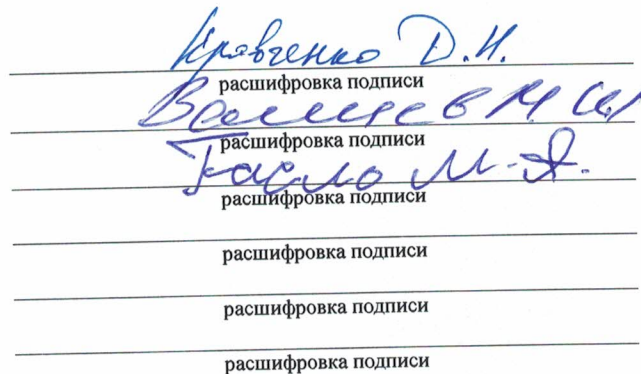 Кравченко Д.Н.
расшифровка подписи
Валишев М И
расшифровка подписи
Тасло М.Я.
расшифровка подписи
расшифровка подписи
расшифровка подписи
расшифровка подписи